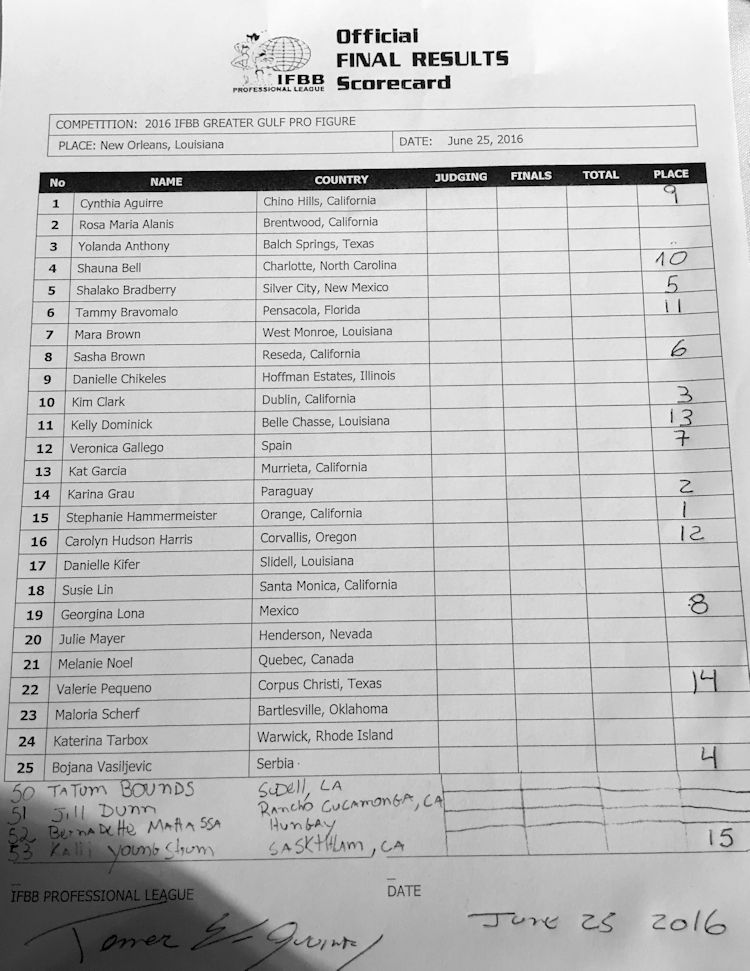 Official
FINAL RESULTS
Scorecard
IFBB
PROFESSIONAL LEAGUE
COMPETITION: 2016 IFBB GREATER GULF PRO FIGURE
PLACE: New Orleans, Louisiana DATE: June 25, 2016
No NAME COUNTRY JUDGING FINALS TOTAL PLACE
1 Cynthia Aguirre Chino Hills, California 9
2 Rosa Maria Alanis Brentwood, California
3 Yolanda Anthony Balch Springs, Texas
4 Shauna Bell Charlotte, North Carolina 10
5 Shalako Bradberry Silver City, New Mexico 5
6 Tammy Bravomalo Pensacola, Florida 11
7 Mara Brown West Monroe, Louisiana
8 Sasha Brown Reseda, California 6
9 Danielle Chikeles Hoffman Estates, Illinois
10 Kim Clark Dublin, California 3
11 Kelly Dominick Belle Chasse, Louisiana 13
12 Veronica Gallego Spain 7
13 Kat Garcia Murrieta, California
14 Karina Grau Paraguay 2
15 Stephanie Hammermeister Orange, California 1
16 Carolyn Hudson Harris Corvallis, Oregon 12
17 Danielle Kifer Slidell, Louisiana
18 Susie Lin Santa Monica, California
19 Georgina Lona Mexico 8
20 Julie Mayer Henderson, Nevada
21 Melanie Noel Quebec, Canada
22 Valerie Pequeno Corpus Christi, Texas 14
23 Maloria Scherf Bartlesville, Oklahoma
24 Katerina Tarbox Warwick, Rhode Island
25 Bojana Vasiljevic Serbia 4
50 TATUM BOUNDS LA
51 Jill Dunn RANCHO CUCAMONGA, CA
52 BERNADETTE MATASSA HUNGAY
53 Kalli Youngstrum , CA 15
IFBB PROFESSIONAL LEAGUE DATE
June 25 2016